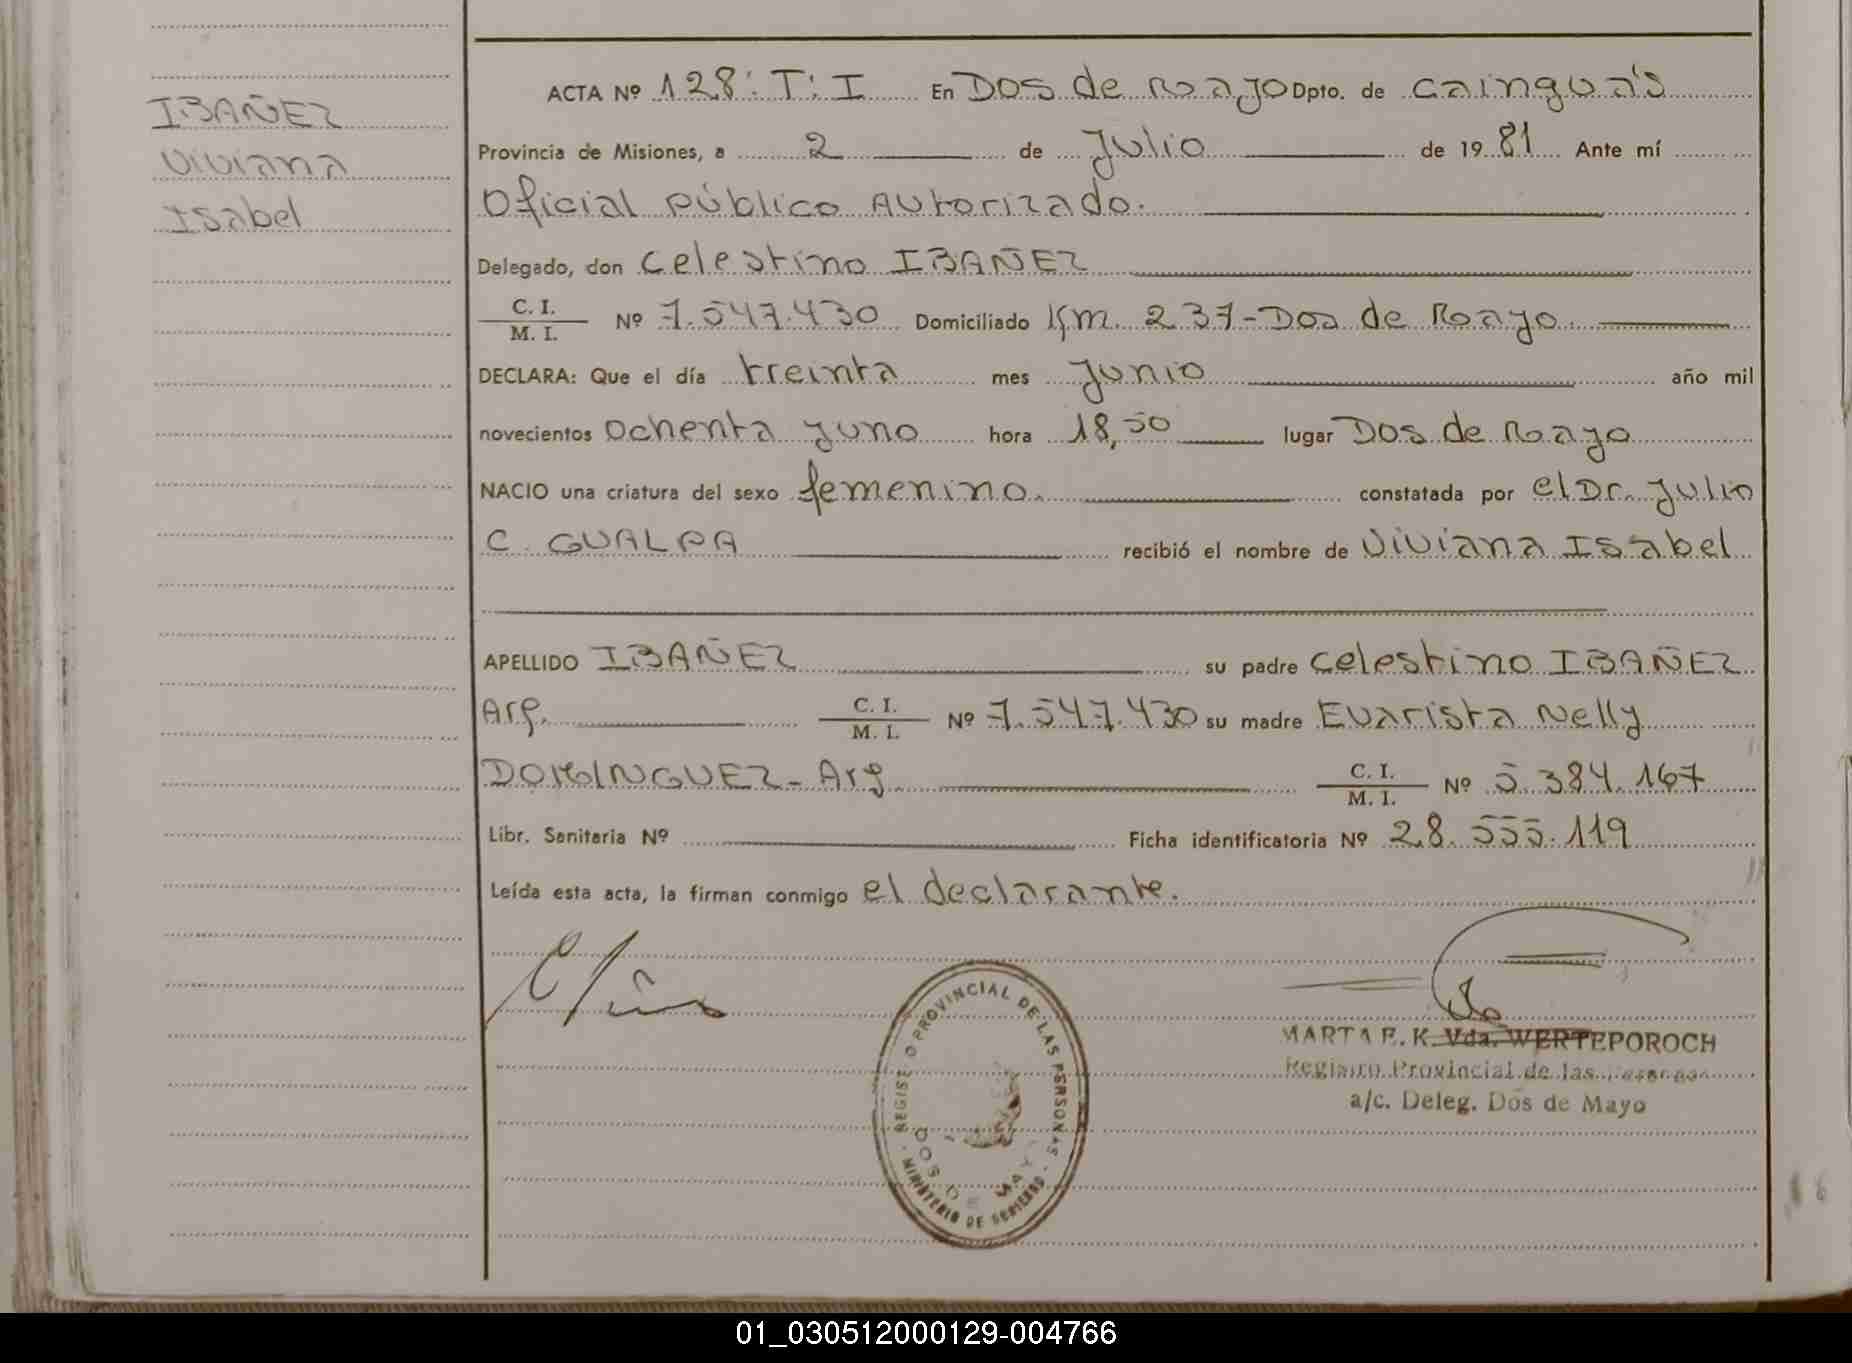 IBAÑEZ
Viviana
Isabel
ACTA Nº 128: T: I En Dos de Mayo Dpto. de Cainguás
Provincia de Misiones, a 2 de Julio de 1981 Ante mí
Oficial Público Autorizado.
Delegado, don Celestino IBAÑEZ
C. I.
M. I. Nº 7.547.430 Domiciliado Km. 237-Dos de Mayo.
DECLARA: Que el día treinta mes Junio año mil
novecientos ochenta y uno hora 18,50 lugar Dos de Mayo
NACIO una criatura del sexo femenino. constatada por el Dr. Julio
C. GUALPA recibió el nombre de Viviana Isabel
APELLIDO IBAÑEZ su padre Celestino IBAÑEZ
Arg. C. I.
M. I. Nº 7.547.430 su madre Evarista Nelly
DOMINGUEZ- Arg. C. I.
M. I. Nº 5.384.167
Libr. Sanitaria Nº Ficha identificatoria Nº 28.555.119
Leída esta acta, la firman conmigo el declarante.
REGISTRO PROVINCIAL DE LAS PERSONAS
DOS DE MAYO
MINISTERIO DE GOBIERNO
MARTA E. K. Vda. WERTEPOROCH
Registro Provincial de las Personas
a/c. Deleg. Dos de Mayo
01_030512000129-004766